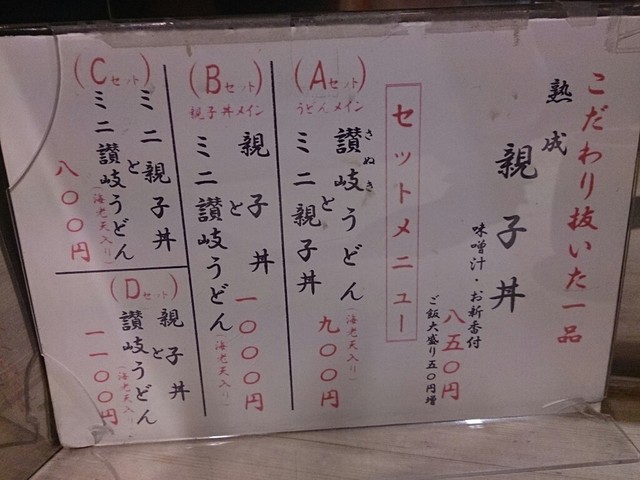 こだわり抜いた一品
熟成
親子丼
味噌汁・お新香付
八五〇円
ご飯大盛り五〇円増
セットメニュー
(Aセット)
うどんメイン
さぬき
讃岐うどん
(海老天入り)
と
ミニ親子丼
九〇〇円
(Bセット)
親子丼メイン
親子丼
と
ミニ讃岐うどん
(海老天入り)
一〇〇〇円
(Cセット)
ミニ親子丼
と
ミニ讃岐うどん
(海老天入り)
八〇〇円
(Dセット)
親子丼
と
讃岐うどん
(海老天入り)
一一〇〇円